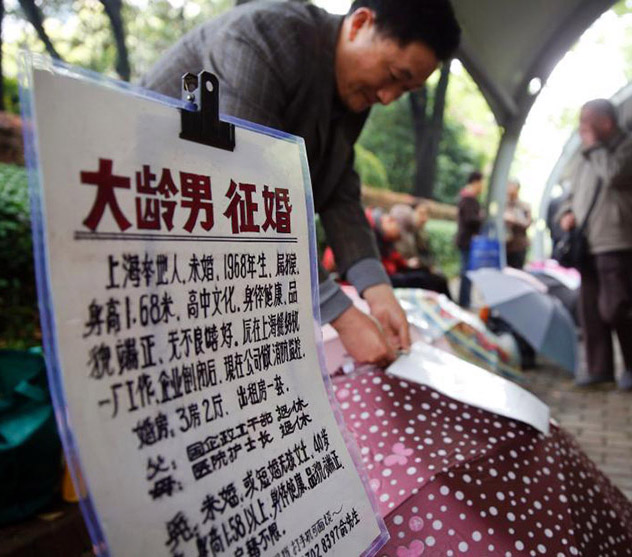 大龄男 征婚
上海本地人，未婚，1968年生，属猴，
身高1.68米，高中文化，身体健康，品
貌端正，无不良嗜好。原在上海柴油机
一厂工作，企业倒闭后，现在公司做消防监控。
婚房：3房2厅、出租房一套。
父：国企政工干部 退休
母：医院护士长 退休
觅：未婚，或短婚无孩女士，40岁
身高1.58以上，身体健康，品貌端正
不限